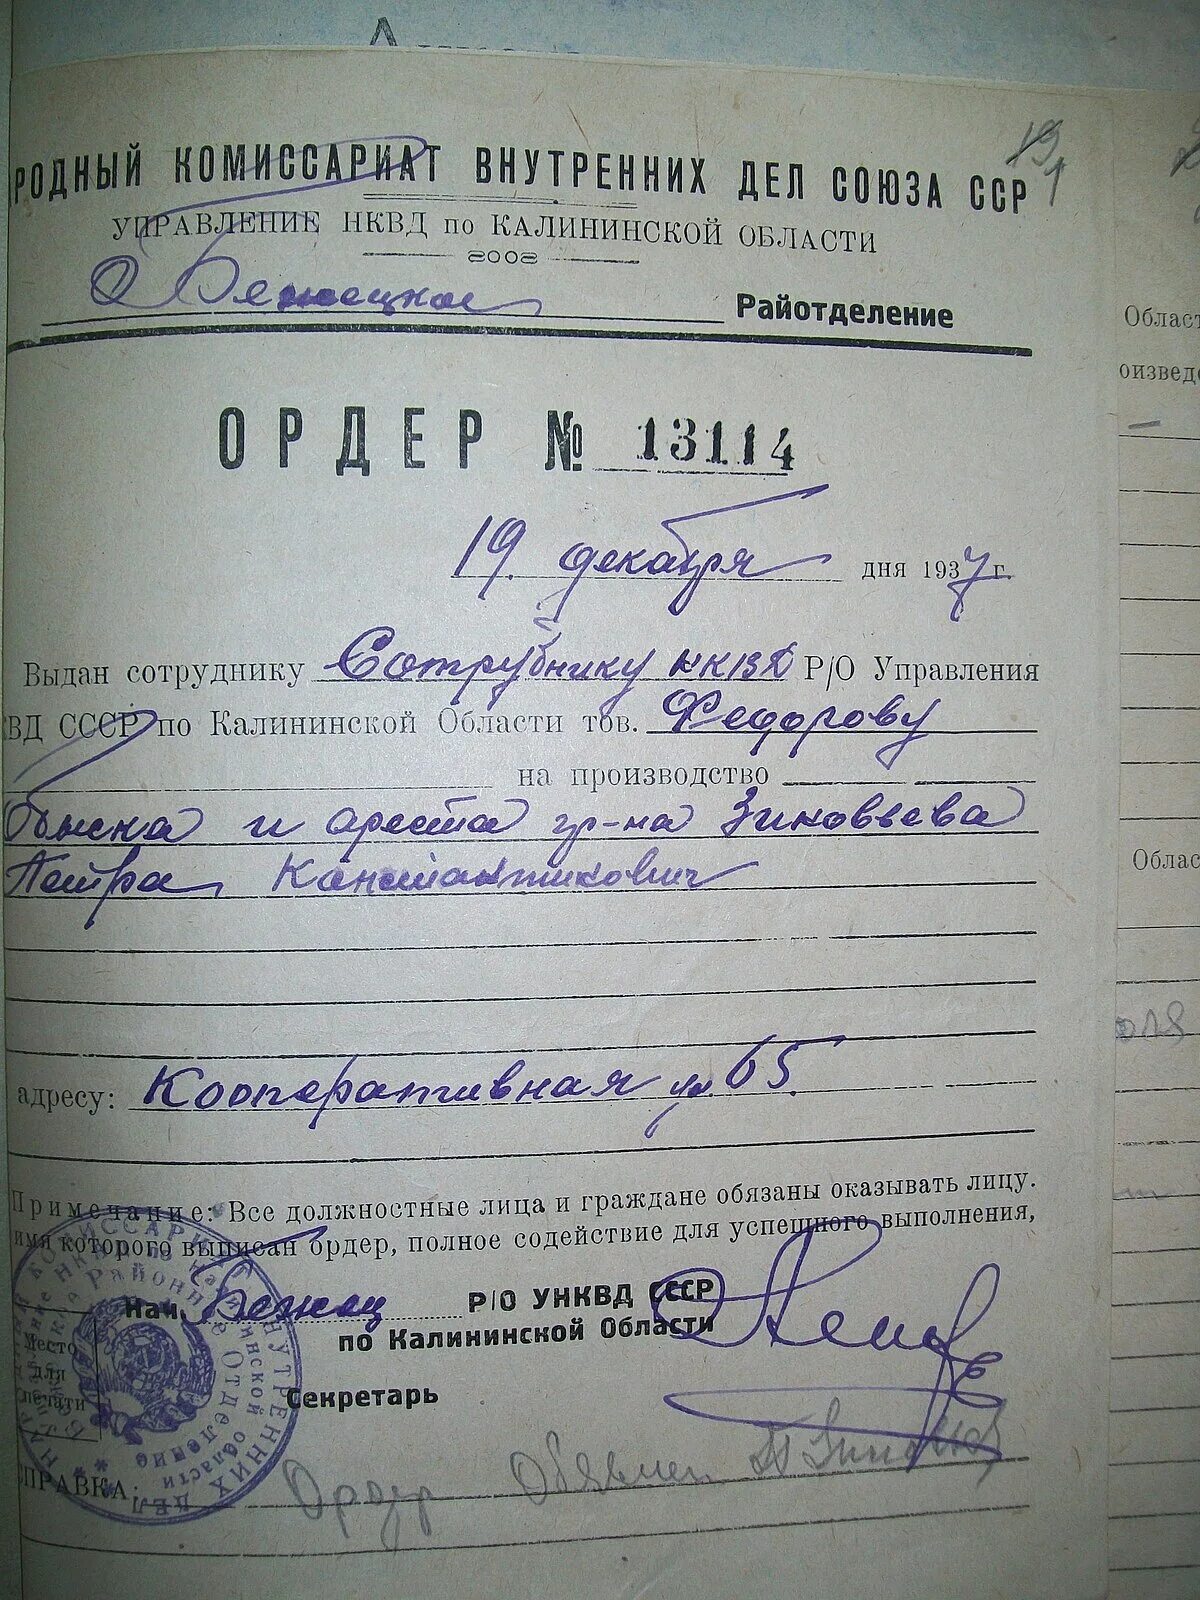 РОДНЫЙ КОМИССАРИАТ ВНУТРЕННИХ ДЕЛ СОЮЗА ССР
УПРАВЛЕНИЕ НКВД по КАЛИНИНСКОЙ ОБЛАСТИ
Бежецкое Райотделение
ОРДЕР № 13114
19. декабря дня 1937 г.
Выдан сотруднику Сотруднику НКВД Р/О Управления
ВД СССР по Калининской Области тов. Федорову
на производство
Обыска и ареста гр-на Зиновьева
Петра Константинович
адресу: Кооперативная ул. 65.
Примечание: Все должностные лица и граждане обязаны оказывать лицу.
имя которого выписан ордер, полное содействие для успешного выполнения,
Нач. Бежец Р/О УНКВД СССР
по Калининской Области
Секретарь
Место
для
печати
ПРАВКА: Ордер Объявлен П Зиновьев
Област
оизведе
Облас
оля